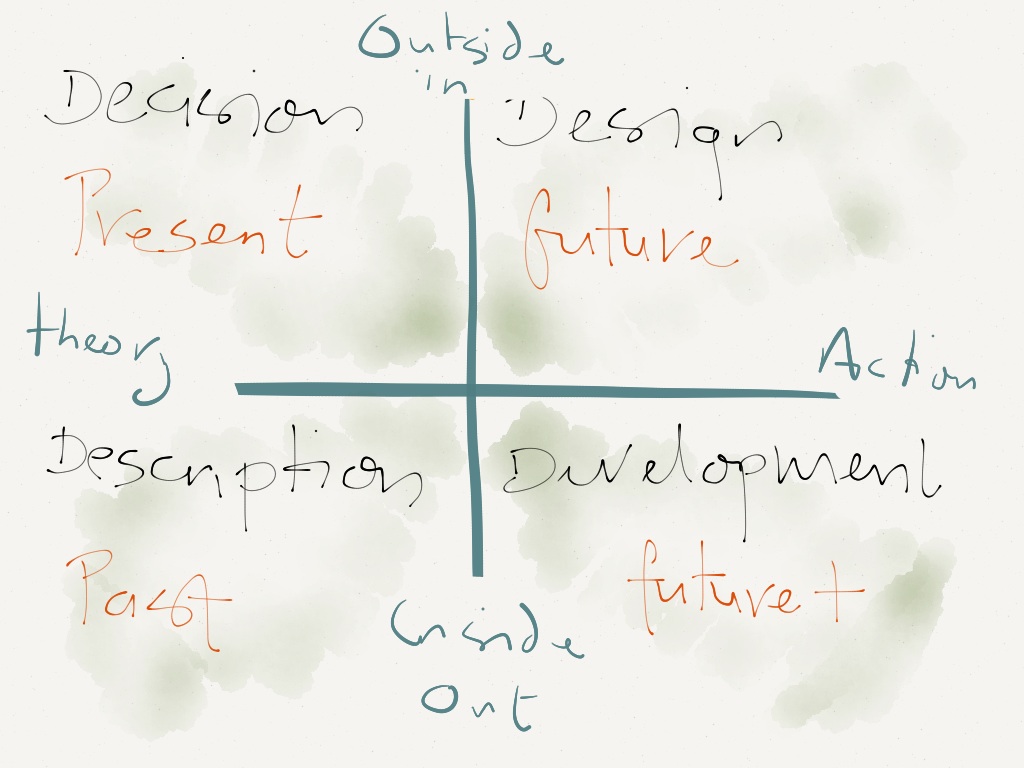 Outside
in
Decision
Design
Present
future
theory
Action
Description
Development
Past
future +
Inside
Out